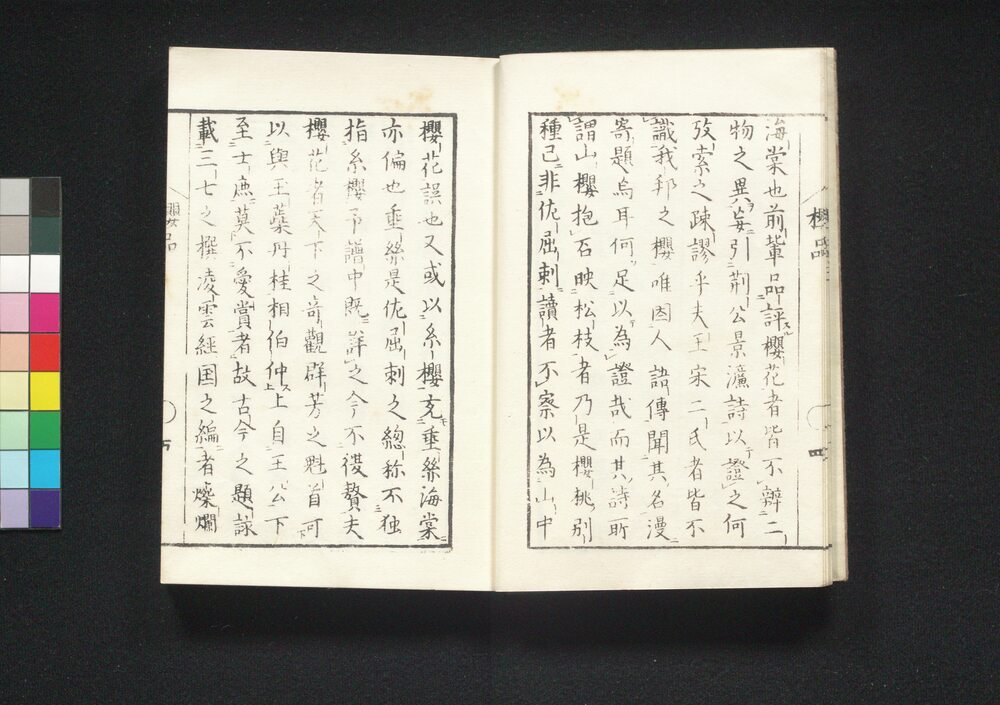 海棠也前輩品評櫻花者皆不辨二
物之異妄引荊公景濂詩以證之何
攷索之疎謬乎夫王宋二氏者皆不
識我邦之櫻唯因人語傳聞其名漫
寄題烏耳何足以為證哉而其詩所
謂山櫻抱石映松枝者乃是櫻桃別
種已非佐屈刺讀者不察以為山中
櫻品
四
櫻花誤也又或以糸櫻充垂絲海棠
亦偏也垂絲是佐屈刺之總称不独
指糸櫻予譜中既詳之今不復贅夫
櫻花者天下之奇觀群芳之魁首可
以與王蘂丹桂相伯仲上自王公下
至士庶莫不愛賞者故古今之題詠
載三七之撰凌雲經国之編者燦爛
櫻品
五